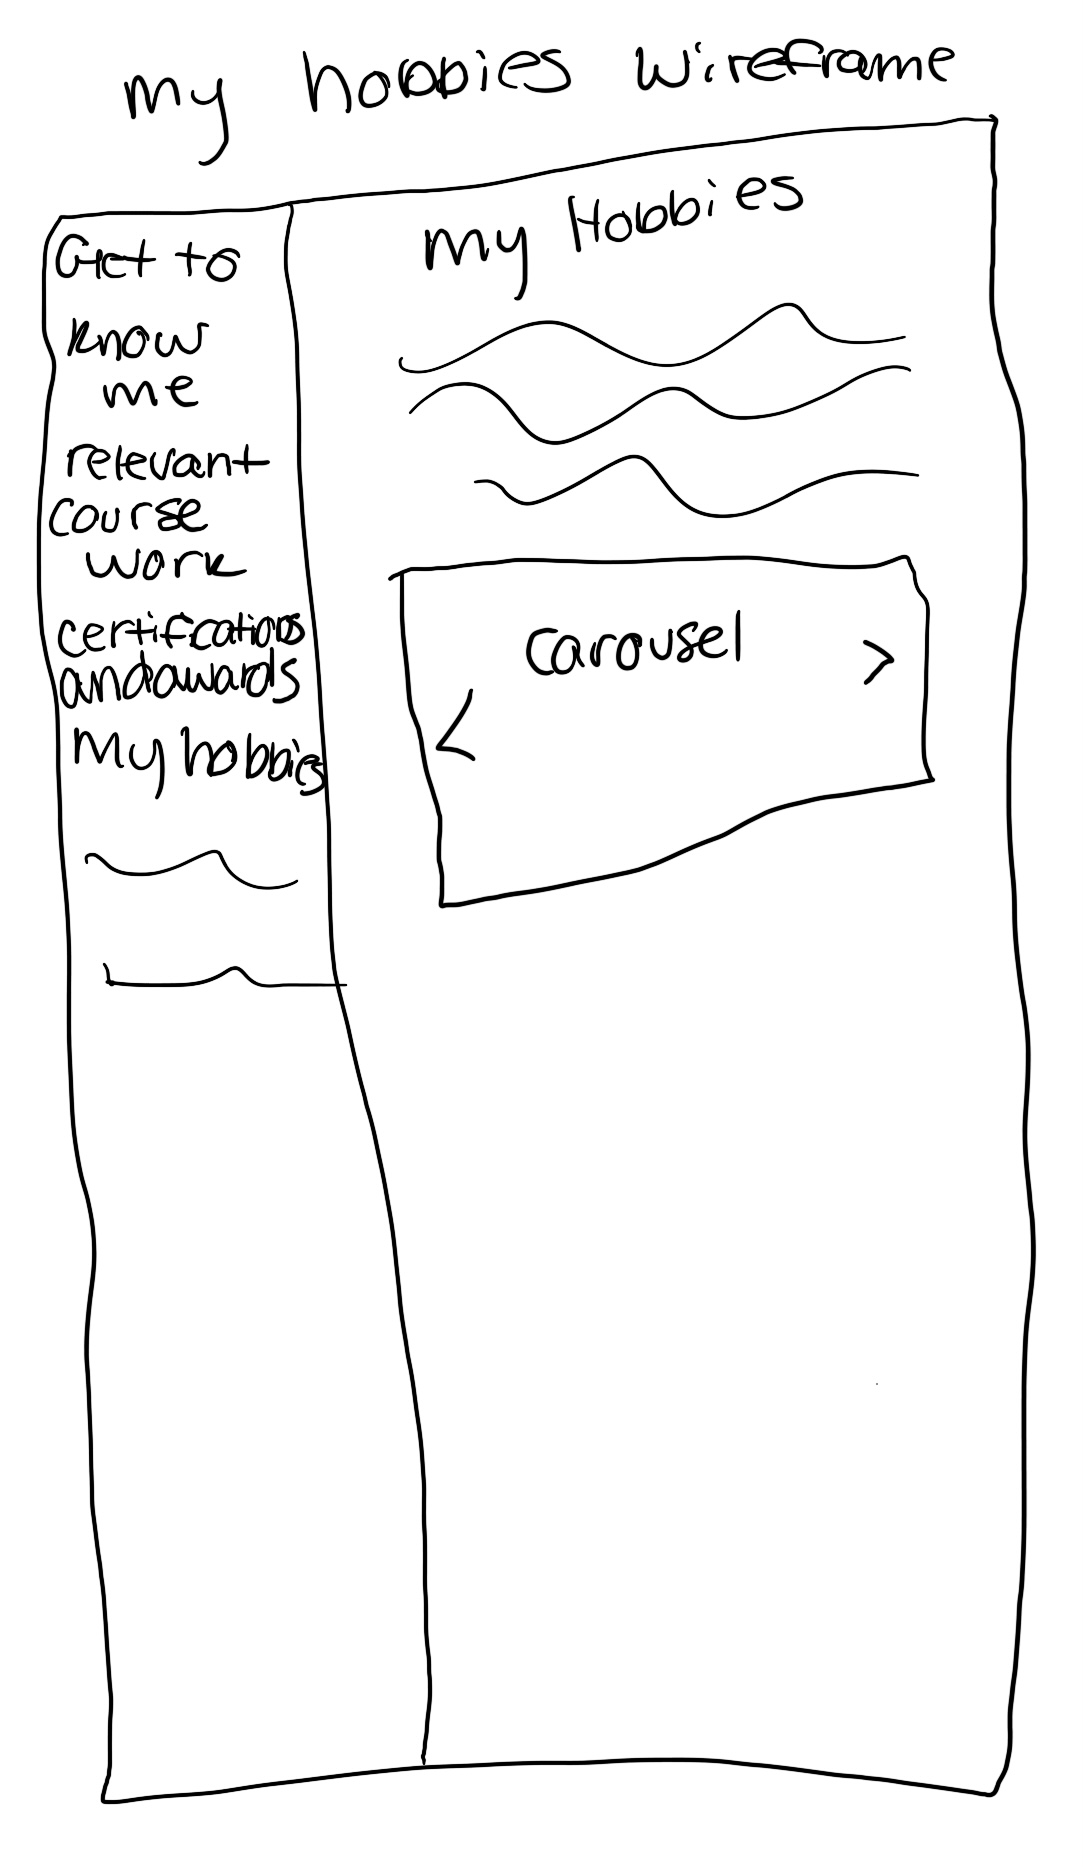 my hobbies wireframe
Get to
know
me
relevant
course
work
certifications
andawards
My hobbies
my Hobbies
Carousel
>
<